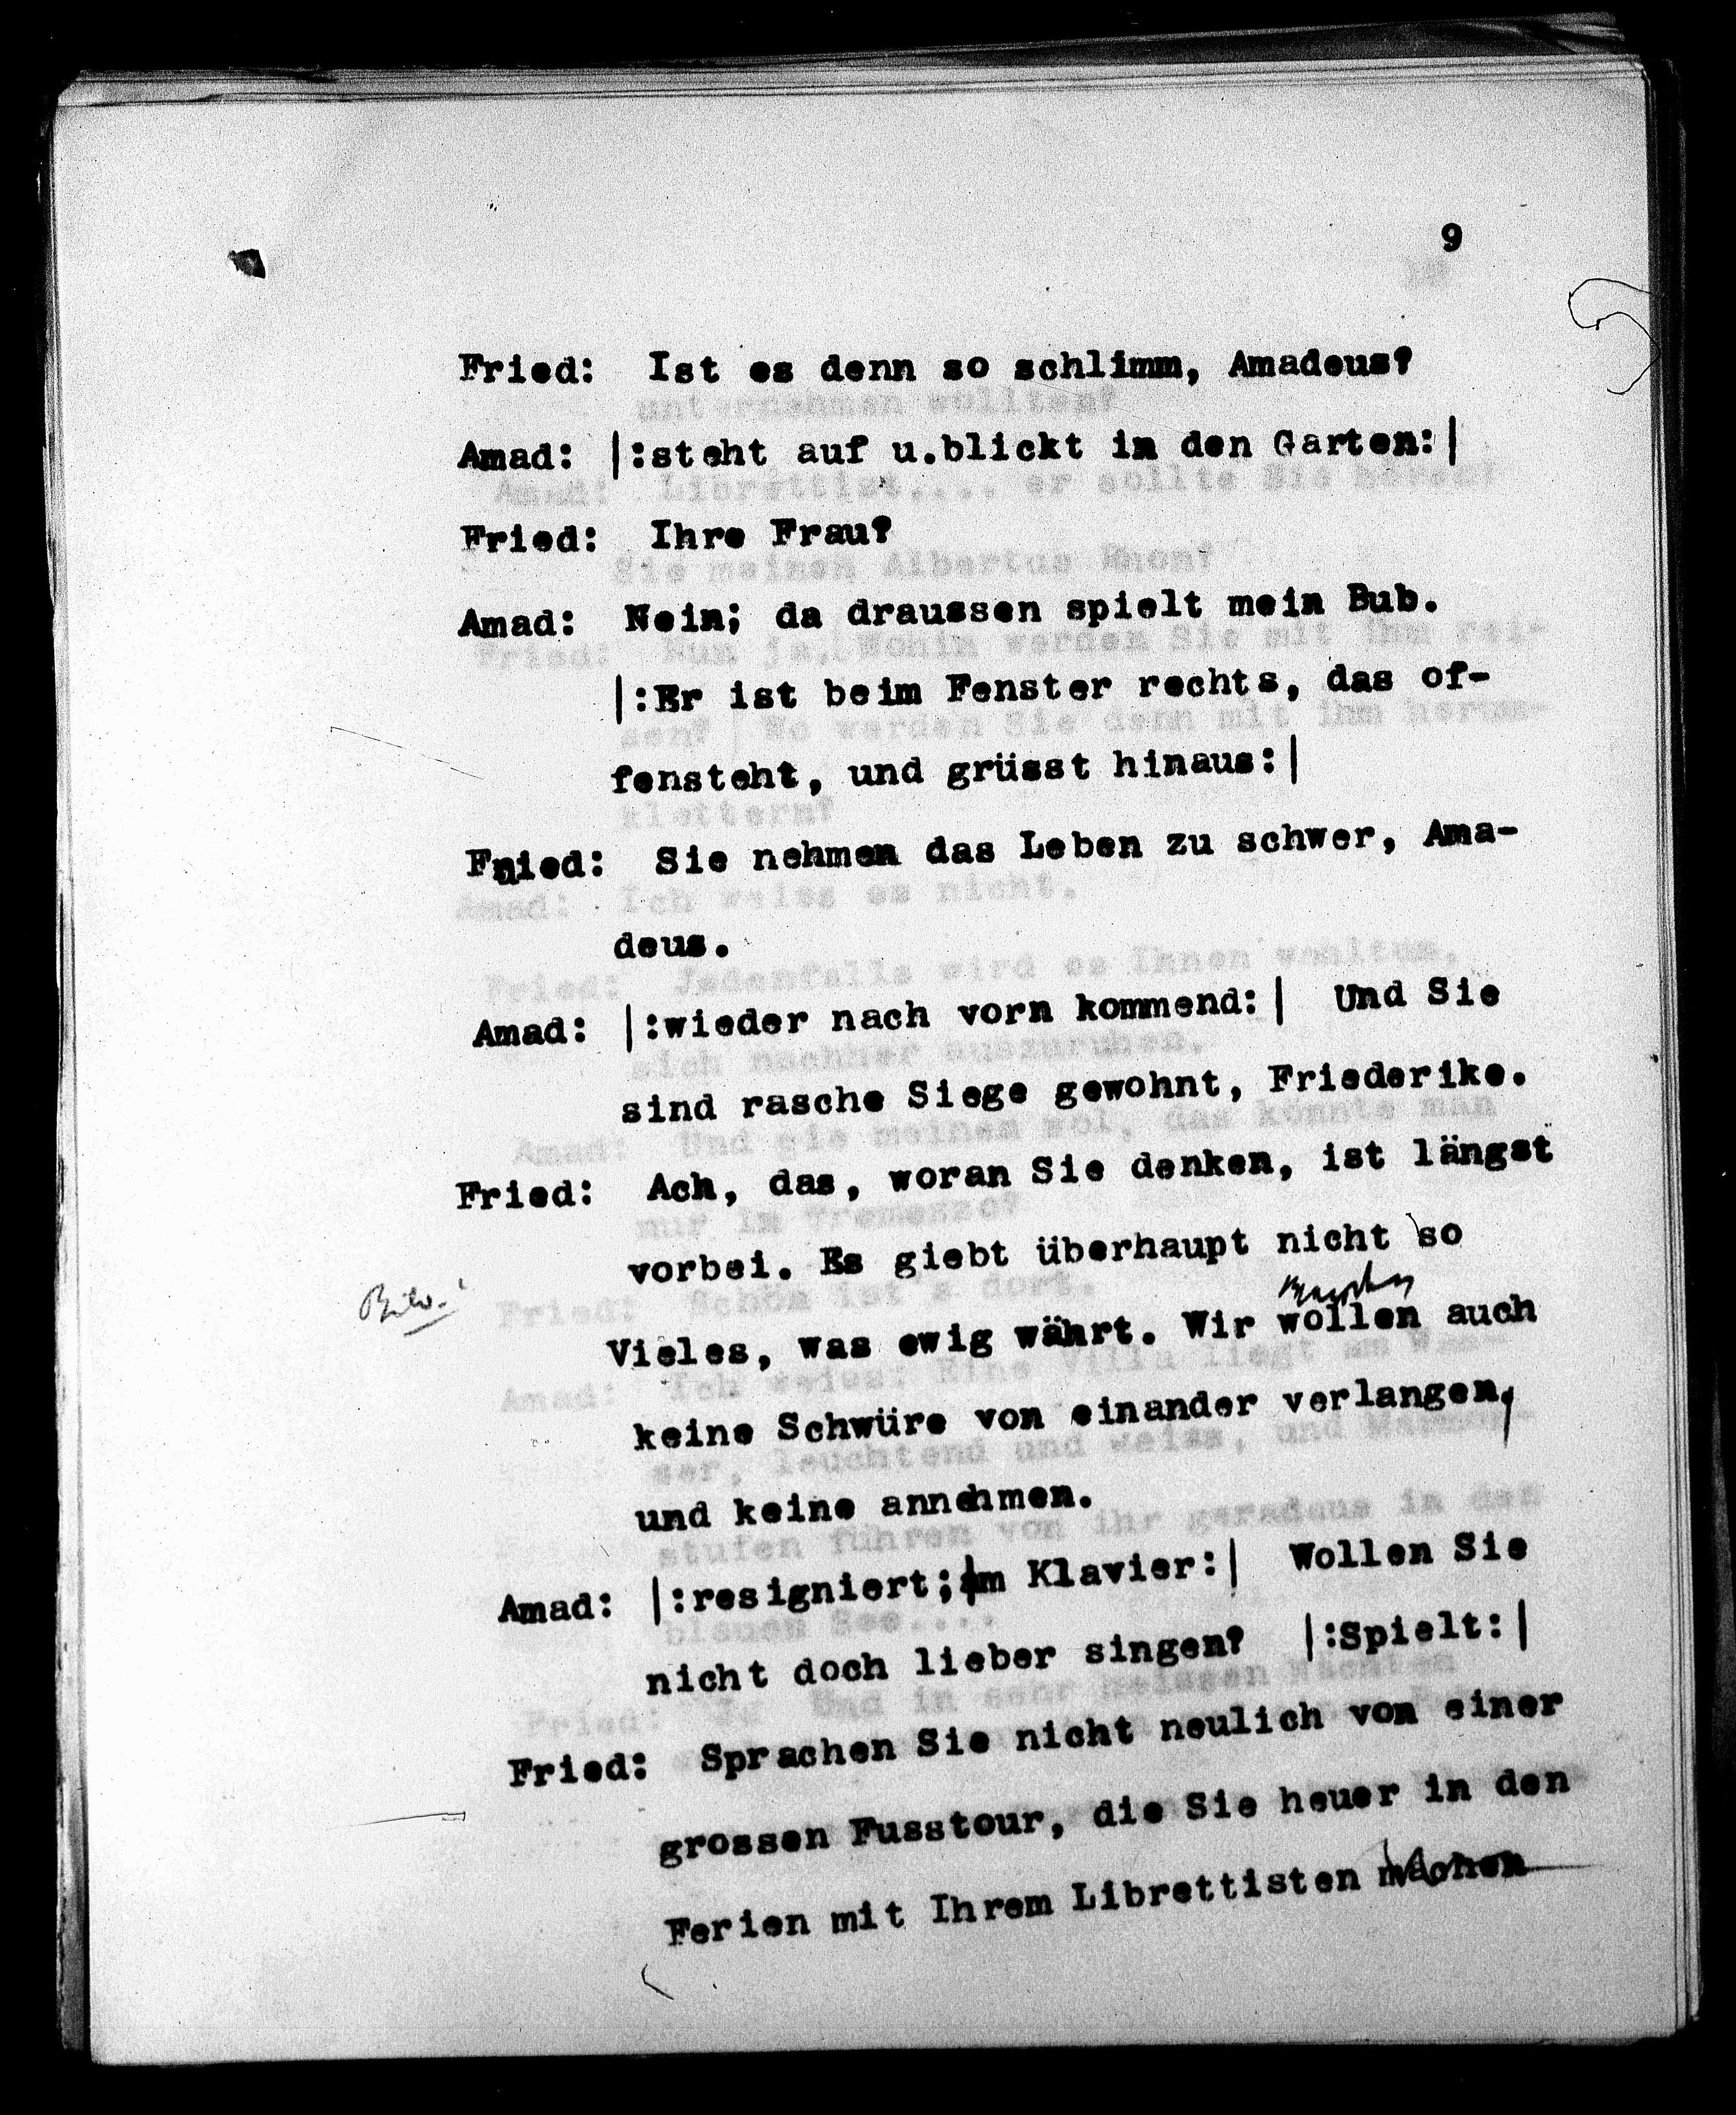 9
Fried: Ist es denn so schlimm, Amadeus?
Amad: |:steht auf u.blickt in den Garten:|
Fried: Ihre Frau?
Amad: Nein; da draussen spielt mein Bub.
|:Er ist beim Fenster rechts, das of-
fensteht, und grüsst hinaus:|
Fnied: Sie nehmen das Leben zu schwer, Ama-
deus.
Amad: |:wieder nach vorn kommend:| Und Sie
sind rasche Siege gewohnt, Friederike.
Fried: Ach, das, woran Sie denken, ist längst
vorbei. Es giebt überhaupt nicht so
Vieles, was ewig währt. Wir wollen auch
keine Schwüre von einander verlangen,
und keine annehmen.
Amad: |:resigniert; am Klavier:| Wollen Sie
nicht doch lieber singen? |:Spielt:|
Fried: Sprachen Sie nicht neulich von einer
grossen Fusstour, die Sie heuer in den
Ferien mit Ihrem Librettisten machen